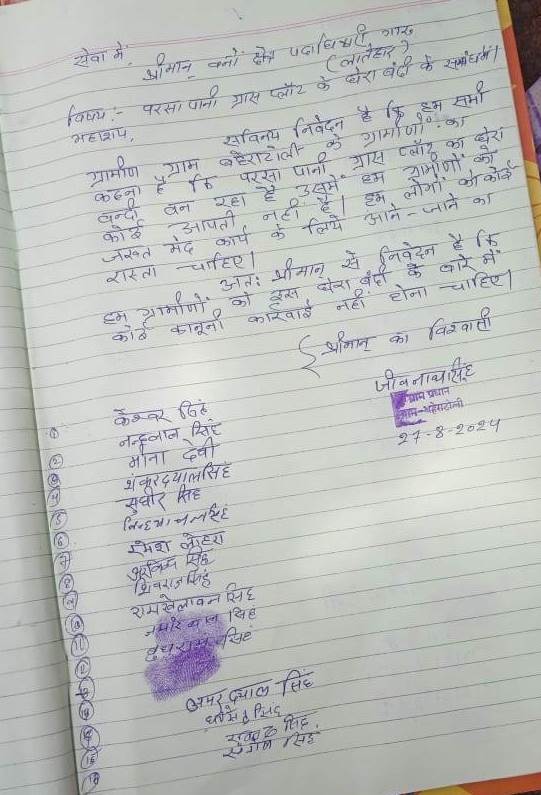 सेवा में,
श्रीमान् वनों क्षेत्र पदाधिकारी गारू
(लातेहार)
विषय:- परसा पानी ग्रास प्लॉट के घेरा बंदी के संबंध में।
महाशय,
सविनय निवेदन है कि हम सभी
ग्रामीण ग्राम बहेराटोली के ग्रामीणों का
कहना है कि परसा पानी ग्रास प्लॉट का घेरा
बन्दी बन रहा है उसमें हम ग्रामीणों को
कोई आपती नहीं है। हम लोगों को कोई
जरूत मंद कार्य के लिये आने-जाने का
रास्ता चाहिए।
अतः श्रीमान् से निवेदन है कि
हम ग्रामीणों को इस घेरा बंदी के बारे में
कोई कानूनी कारवाई नहीं होना चाहिए।
श्रीमान् का विश्वासी
जीवनाथ सिंह
ग्राम प्रधान
ग्राम-बहेराटोली
27-8-2024
① केश्वर सिंह
नन्हलाल सिंह
② मीना देवी
③ शंकर दयाल सिंह
④ सुधीर सिंह
⑤ विन्ध्याचल सिंह
⑥ रमेश लोहरा
⑦ अरविन्द सिंह
⑧ शिवराज सिंह
⑨ रामखेलावन सिंह
⑩ सिंह
⑪ बुधराम सिंह
⑫
अमर दयाल सिंह
सिंह
सिंह
सिंह